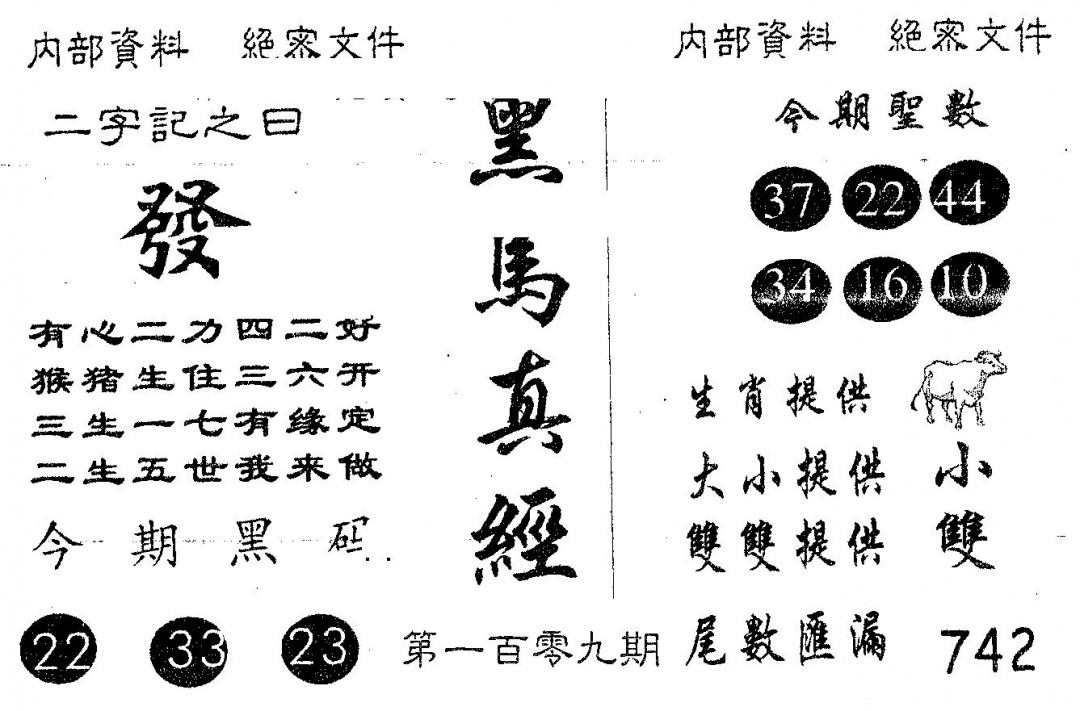 内部資料 絕密文件
內部資料 絕密文件
二字記之曰
發
有心二力四二好
猴猪生住三六开
三生一七有缘定
二生五世我来做
今期黑码
22 33 23
黑馬真經
第一百零九期
今期聖數
37 22 44
34 16 10
生肖提供
大小提供 小
雙雙提供 雙
尾數匯漏 742